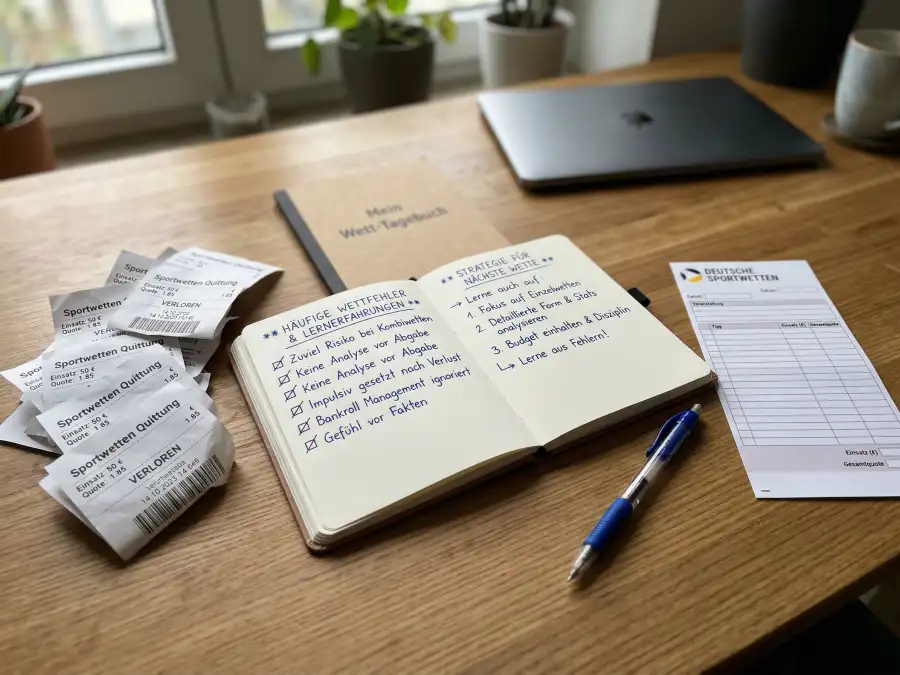 Mein
Wett-Tagebuch
** HÄUFIGE WETTFEHLER
& LERNERFAHRUNGEN **
Zuviel Risiko bei Kombiwetten
Keine Analyse vor Abgabe
Keine Analyse vor Abgabe
Impulsiv gesetzt nach Verlust
Bankroll Management ignoriert
Gefühl vor Fakten
** STRATEGIE FÜR
NÄCHSTE WETTE **
→ Lerne auch auf:
1. Fokus auf Einzelwetten
2. Detaillierte Form & Stats
analysieren
3. Budget einhalten & Disziplin
↳ Lerne aus Fehlern!
Sportwetten Quittung
Einsatz: 50 €
Quote: 1.85
VERLOREN
14.10.2023
Sportwetten Quittung
Einsatz: 50 €
Quote: 1.85
Sportwetten Quittung
Einsatz: 50 €
Quote: 1.85
Sportwetten Quittung
Einsatz: 50 €
Quote: 1.85
1.85
Sportwetten Quittung
Einsatz: 50 €
Quote: 1.85
1.85
VERLOREN
14.10.2023 14 646
DEUTSCHE
SPORTWETTEN
Datum:
Tipp Einsatz (€) Gesamtquote
Einsatz (€)
Gesamtquote